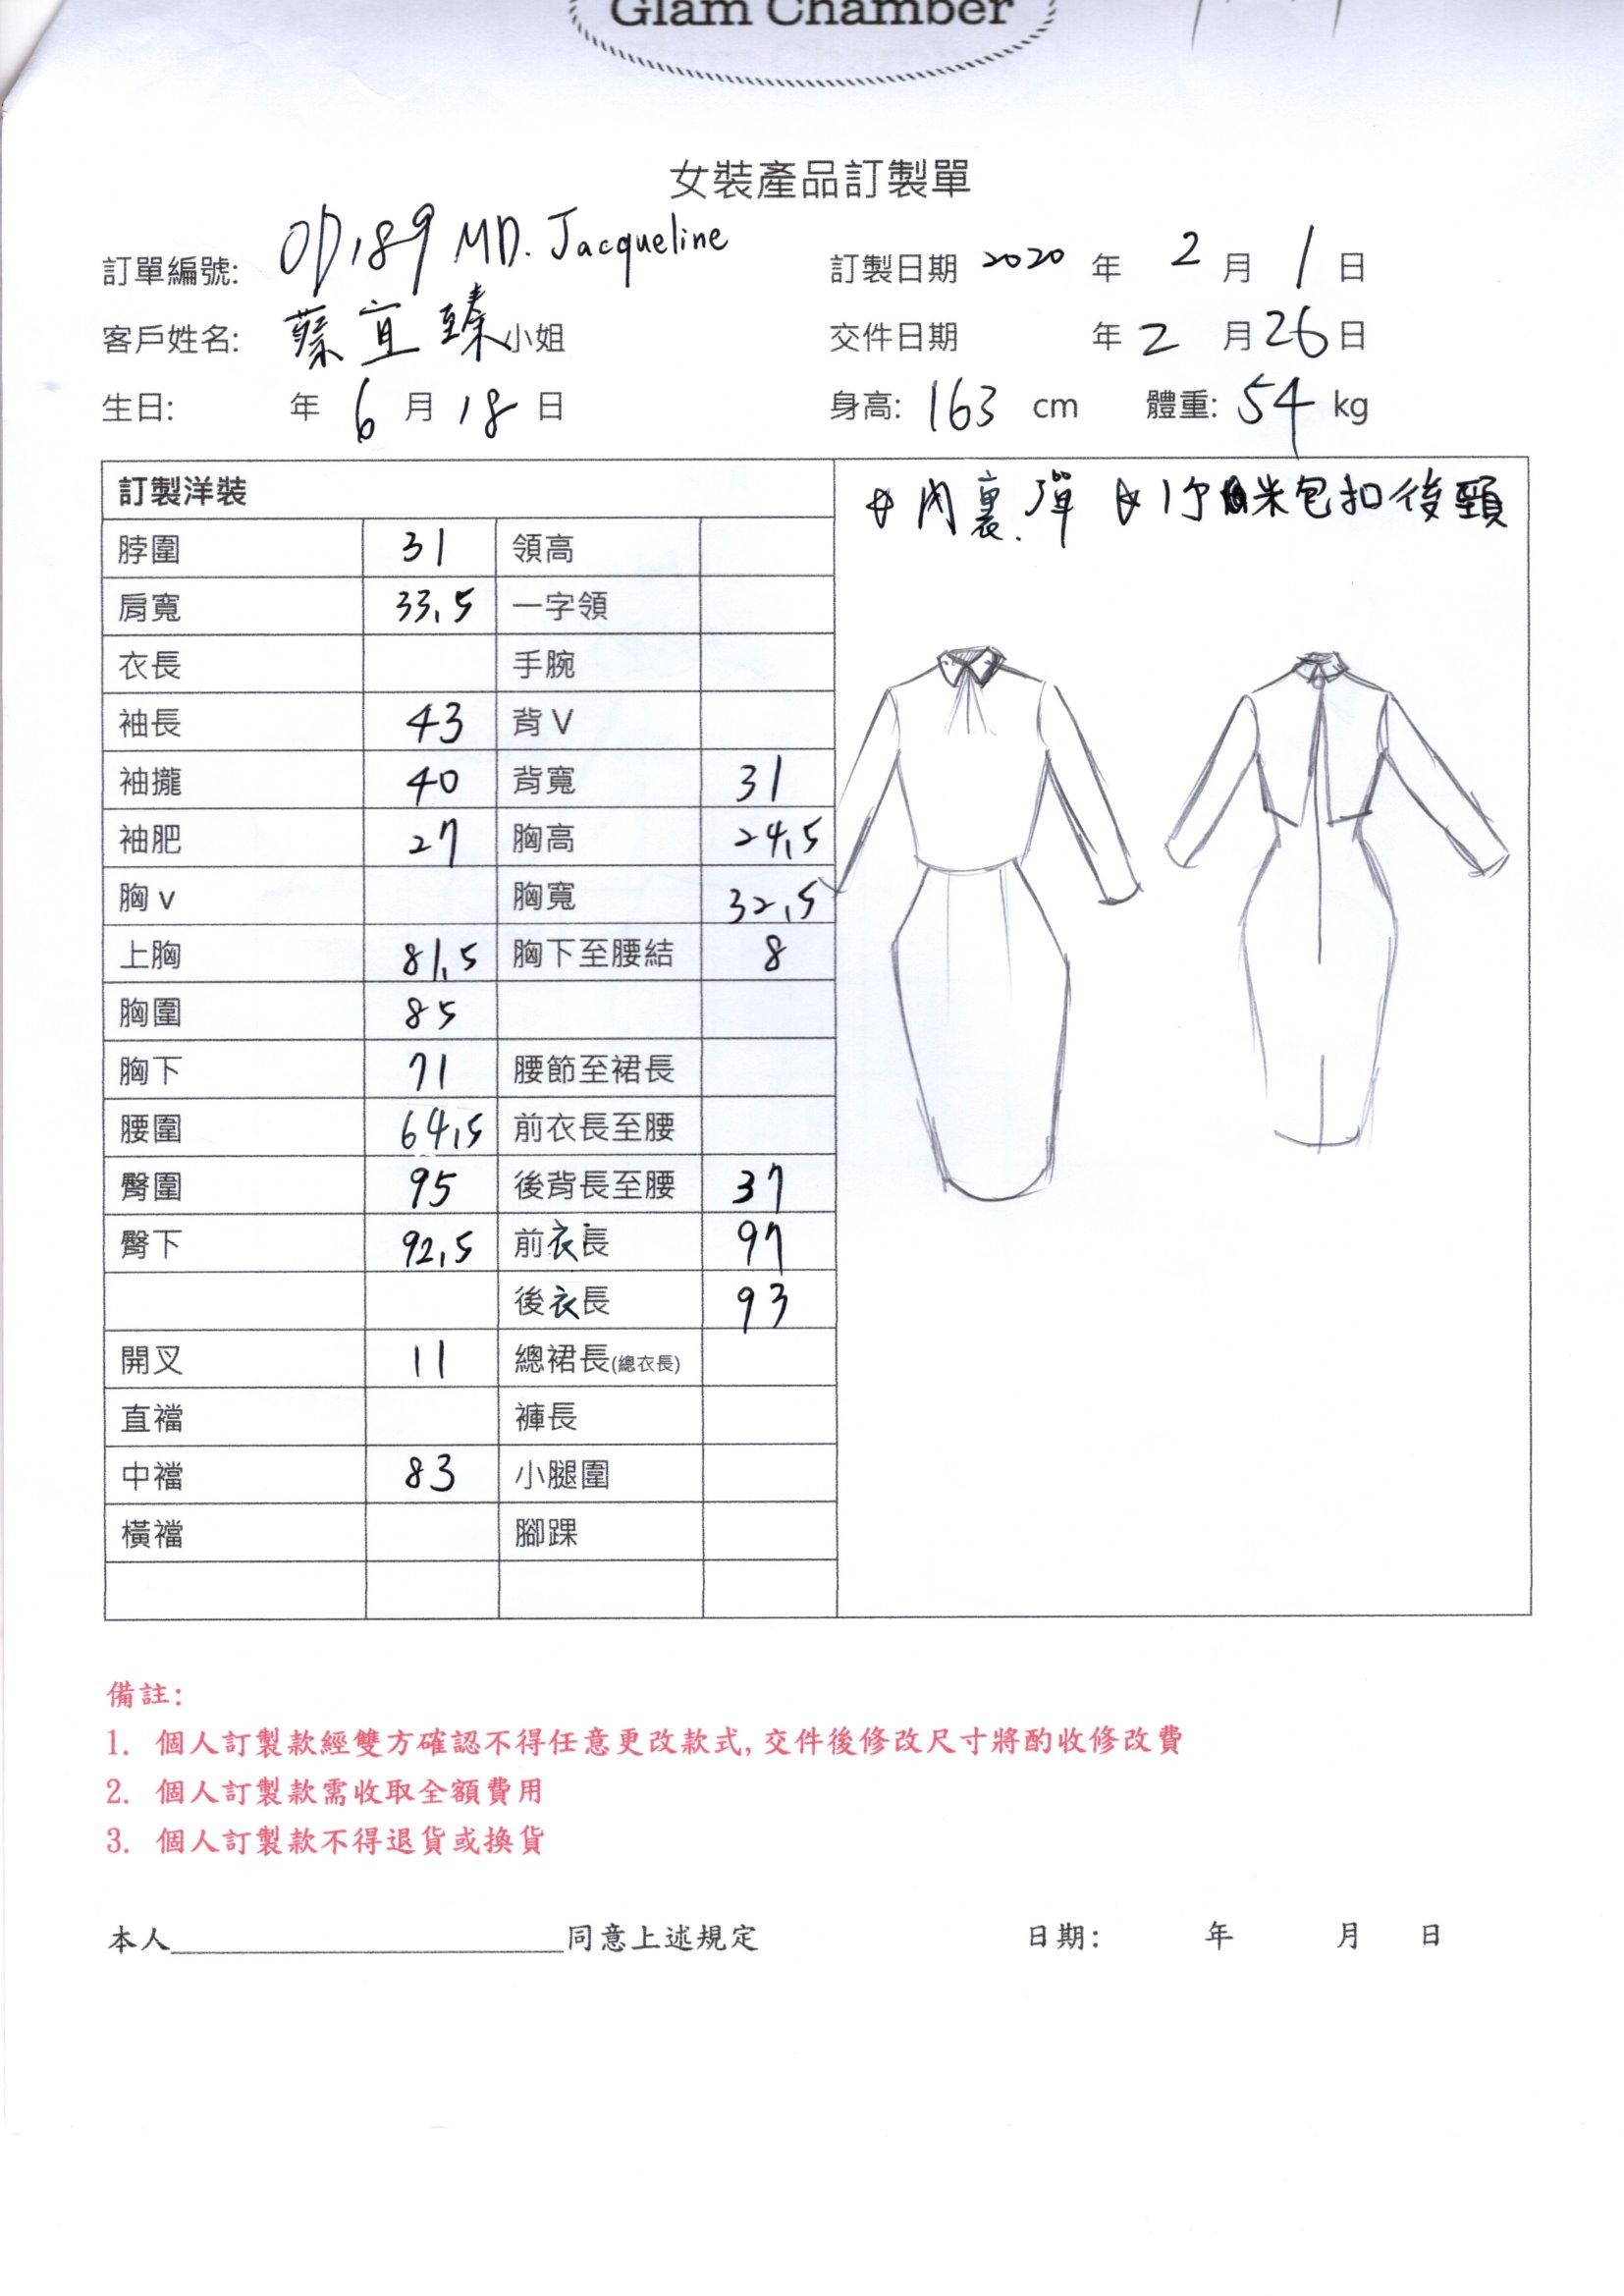 Glam Chamber
女裝產品訂製單
訂單編號: OD189 MD. Jacqueline 訂製日期 2020 年 2 月 1 日
客戶姓名: 蔡宜臻小姐 交件日期 年 2 月 26 日
生日: 年 6 月 18 日 身高: 163 cm 體重: 54 kg
訂製洋裝
內裏.彈 1 米包扣後頸
脖圍 31 領高
肩寬 33.5 一字領
衣長 手腕
袖長 43 背 V
袖攏 40 背寬 31
袖肥 27 胸高 24.5
胸 v 胸寬 32.5
上胸 81.5 胸下至腰結 8
胸圍 85
胸下 71 腰節至裙長
腰圍 64.5 前衣長至腰
臀圍 95 後背長至腰 37
臀下 92.5 前衣長 97
後衣長 93
開叉 11 總裙長(總衣長)
直襠 褲長
中襠 83 小腿圍
橫襠 腳踝
備註:
1. 個人訂製款經雙方確認不得任意更改款式,交件後修改尺寸將酌收修改費
2. 個人訂製款需收取全額費用
3. 個人訂製款不得退貨或換貨
本人________________________同意上述規定 日期: 年 月 日